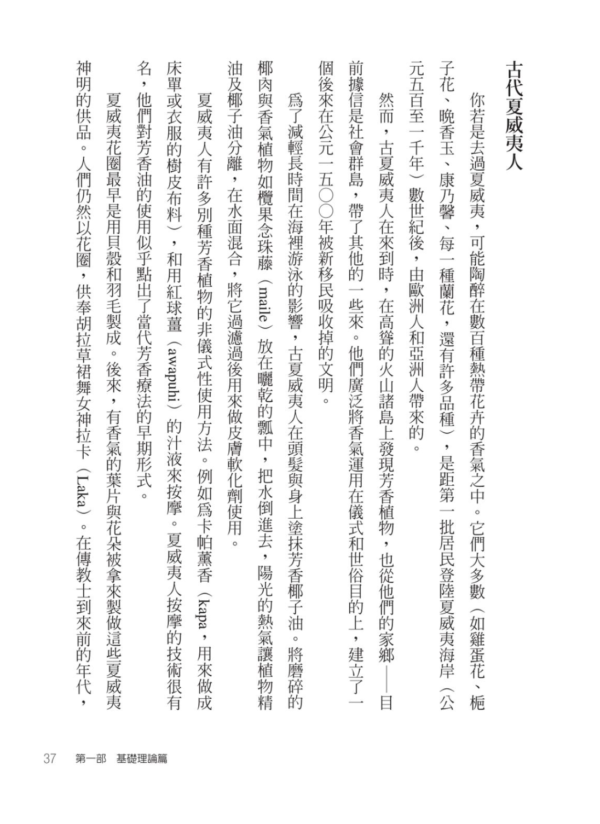 古代夏威夷人
你若是去過夏威夷，可能陶醉在數百種熱帶花卉的香氣之中。它們大多數（如雞蛋花、梔
子花、晚香玉、康乃馨、每一種蘭花，還有許多品種），是距第一批居民登陸夏威夷海岸（公
元五百至一千年）數世紀後，由歐洲人和亞洲人帶來的。
然而，古夏威夷人在來到時，在高聳的火山諸島上發現芳香植物，也從他們的家鄉——目
前據信是社會群島，帶了其他的一些來。他們廣泛將香氣運用在儀式和世俗目的上，建立了一
個後來在公元一五〇〇年被新移民吸收掉的文明。
為了減輕長時間在海裡游泳的影響，古夏威夷人在頭髮與身上塗抹芳香椰子油。將磨碎的
椰肉與香氣植物如欖果念珠藤（maile）放在曬乾的瓢中，把水倒進去，陽光的熱氣讓植物精
油及椰子油分離，在水面混合，將它過濾過後用來做皮膚軟化劑使用。
夏威夷人有許多別種芳香植物的非儀式性使用方法。例如為卡帕薰香（kapa，用來做成
床單或衣服的樹皮布料），和用紅球薑（awapuhi）的汁液來按摩。夏威夷人按摩的技術很有
名，他們對芳香油的使用似乎點出了當代芳香療法的早期形式。
夏威夷花圈最早是用貝殼和羽毛製成。後來，有香氣的葉片與花朵被拿來製做這些夏威夷
神明的供品。人們仍然以花圈，供奉胡拉草裙舞女神拉卡（Laka）。在傳教士到來前的年代，
37 第一部 基礎理論篇